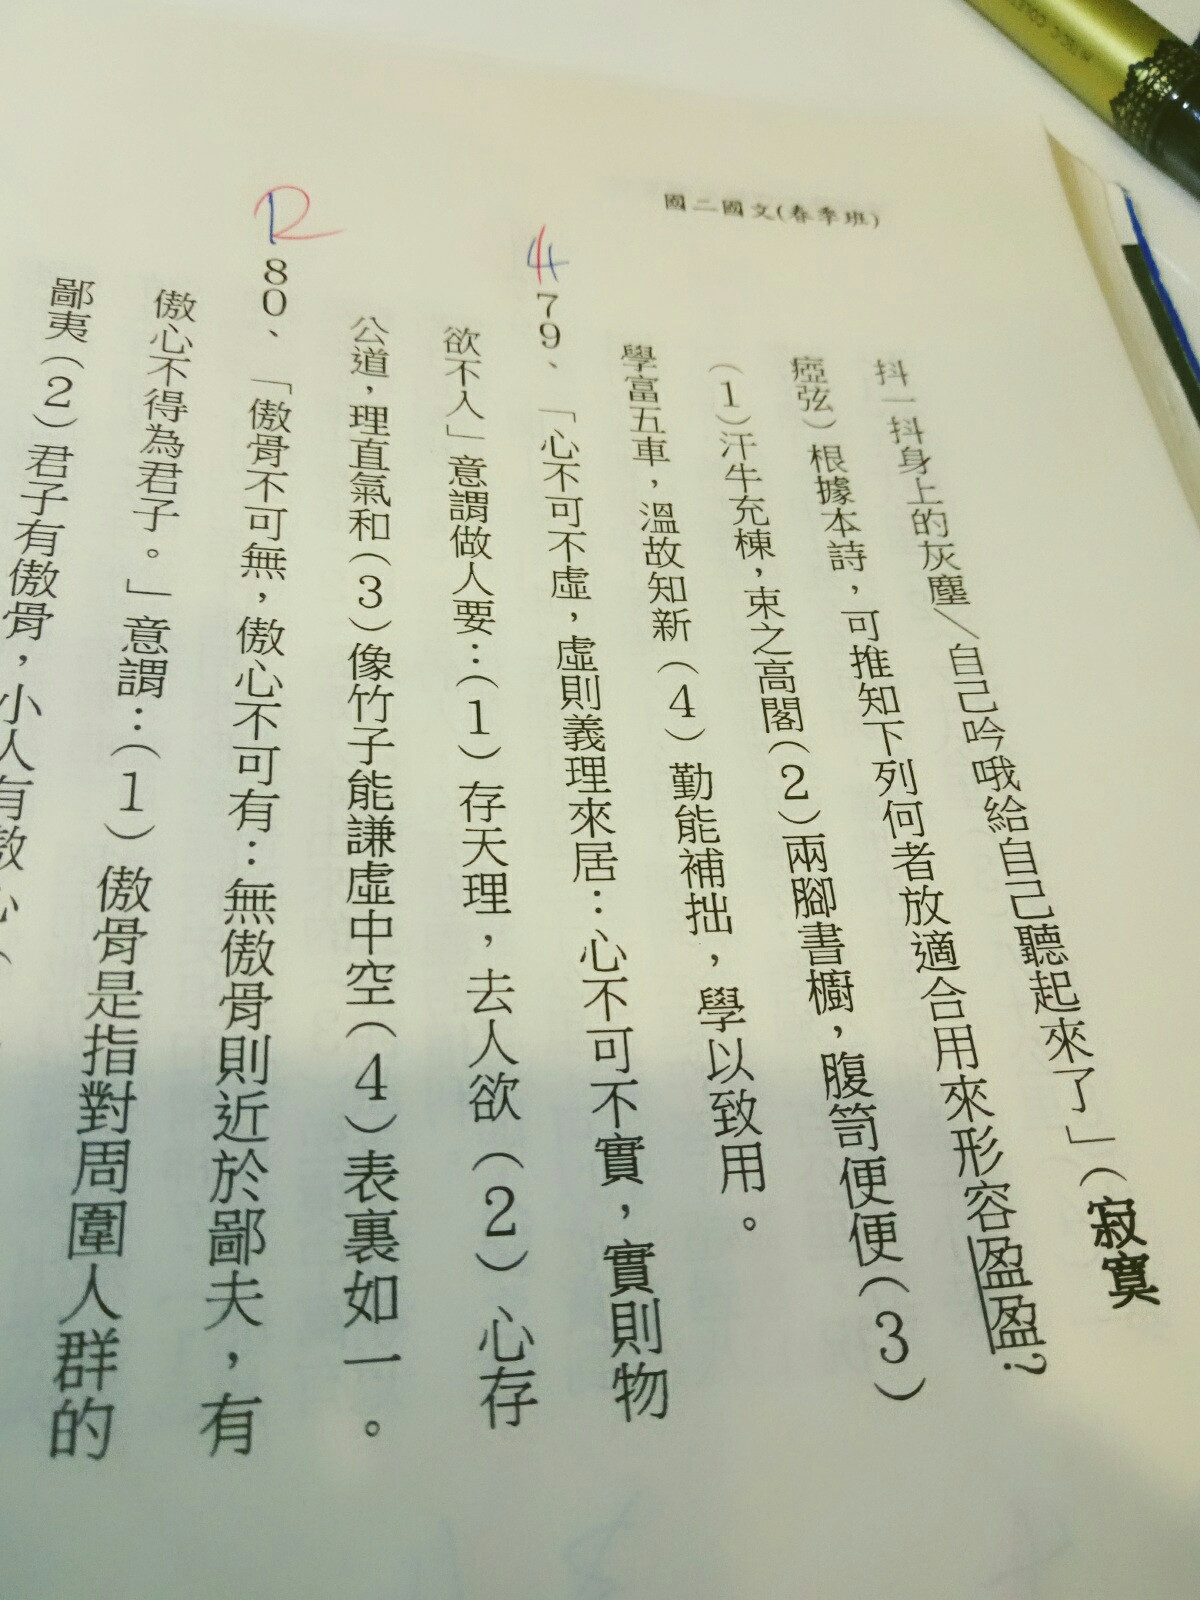 國二國文(春季班)
抖一抖身上的灰塵\自己吟哦給自己聽起來了」(寂寞
瘂弦)根據本詩,可推知下列何者放適合用來形容盈盈?
(1)汗牛充棟,束之高閣(2)兩腳書櫥,腹笥便便(3)
學富五車,溫故知新(4)勤能補拙,學以致用。
4
79、「心不可不虛,虛則義理來居:心不可不實,實則物
欲不入」意謂做人要:(1)存天理,去人欲(2)心存
公道,理直氣和(3)像竹子能謙虛中空(4)表裏如一。
80、「傲骨不可無,傲心不可有:無傲骨則近於鄙夫,有
傲心不得為君子。」意謂:(1)傲骨是指對周圍人群的
鄙夷(2)君子有傲骨,小人有傲心(